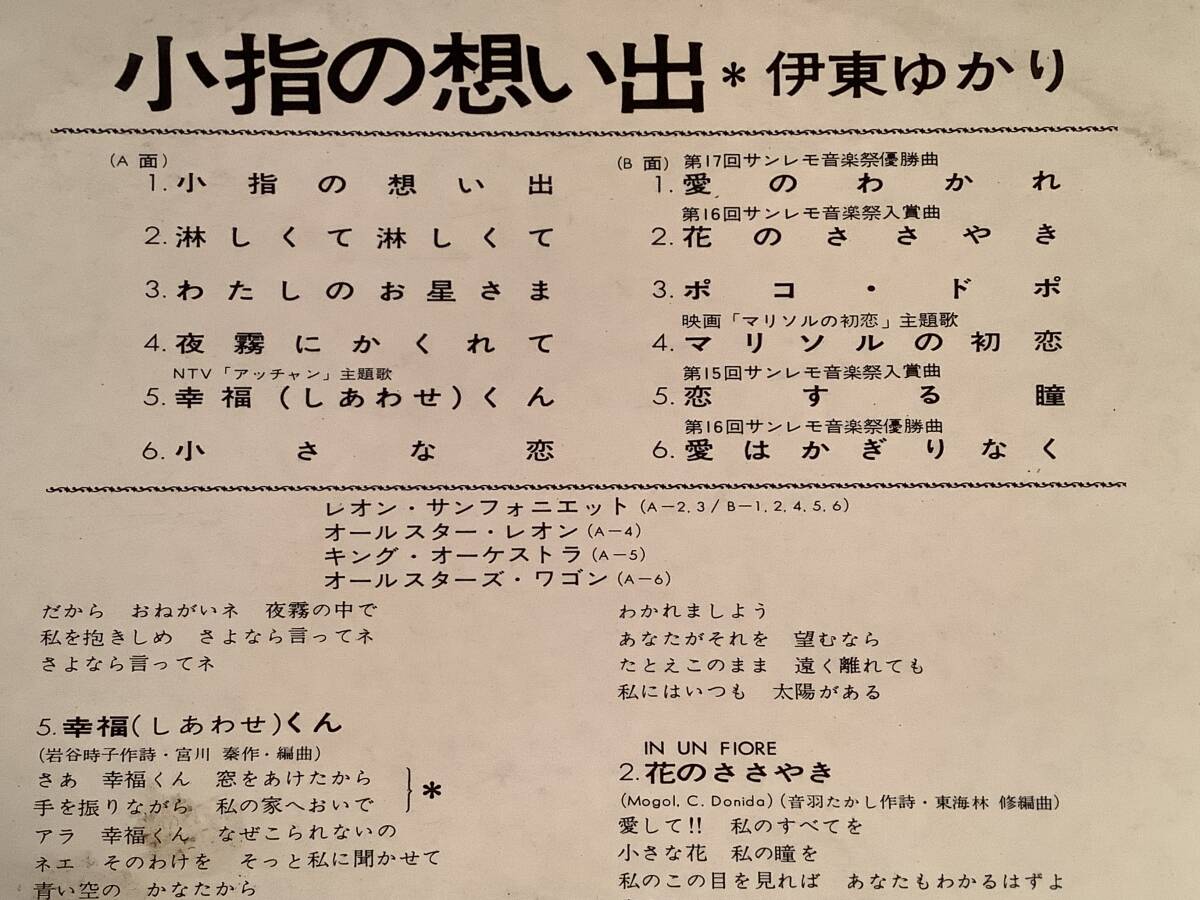 小指の想い出*伊東ゆかり
(A 面)
1. 小指の想い出
2. 淋しくて淋しくて
3. わたしのお星さま
4. 夜霧にかくれて
NTV「アッチャン」主題歌
5. 幸福(しあわせ)くん
6. 小さな恋
(B 面) 第17回サンレモ音楽祭優勝曲
1. 愛のわかれ
第16回サンレモ音楽祭入賞曲
2. 花のささやき
3. ポコ・ドポ
映画「マリソルの初恋」主題歌
4. マリソルの初恋
第15回サンレモ音楽祭入賞曲
5. 恋する瞳
第16回サンレモ音楽祭優勝曲
6. 愛はかぎりなく
レオン・サンフォニエット(A-2, 3 / B-1, 2, 4, 5, 6)
オールスター・レオン(A-4)
キング・オーケストラ(A-5)
オールスターズ・ワゴン(A-6)
だから おねがいネ 夜霧の中で
私を抱きしめ さよなら言ってネ
さよなら言ってネ
5. 幸福(しあわせ)くん
(岩谷時子作詩・宮川 秦作・編曲)
さあ 幸福くん 窓をあけたから
手を振りながら 私の家へおいで
*
アラ 幸福くん なぜこられないの
ネエ そのわけを そっと私に聞かせて
青い空の かなたから
わかれましよう
あなたがそれを 望むなら
たとえこのまま 遠く離れても
私にはいつも 太陽がある
IN UN FIORE
2. 花のささやき
(Mogol, C. Donida)(音羽たかし作詩・東海林 修編曲)
愛して!! 私のすべてを
小さな花 私の瞳を
私のこの目を見れば あなたもわかるはずよ